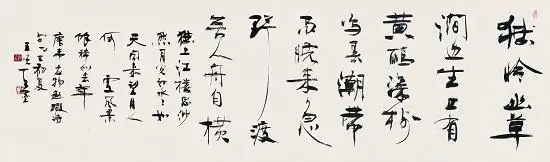 独怜幽草
涧边生上有
黄鹂深树
鸣春潮带
雨晚来急
野渡
无人舟自横
独上江楼思渺
然月光如水水如
天同来望月人
何处风景
依稀似去年
唐韦应物赵嘏诗